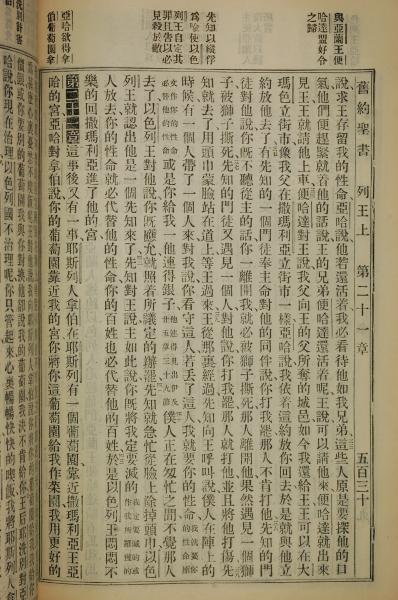 與亞蘭王便
哈達盟好令
之歸
先知以縱俘
為喻使以色
列王自定其
罪且告以必
見殺於敵
亞哈欲得拿
伯葡萄園拿
舊約聖書 列王上 第二十一章 五百三十
說求王存留我的性命亞哈說他若還活着我必看待他如我兄弟這些人原是要探他的口
氣他們便趕緊就着他的話說王的兄弟便哈達還活着呢王說可以請他來便哈達就出來
見王王就請他上車便哈達對王說我父向王的父所奪的城邑如今我還給王王可以在大
瑪色立街市像我父在撒瑪利亞立街市一樣亞哈說我依着這約放你回去於是就與他立
約放他去了有先知的一個門徒奉主命對他的同伴說你打我罷那人不肯打他先知的門
徒對他說你旣不聽從主的話你一離開我就必被獅子撕死那人離開他果然遇見一個獅
子被獅子撕死先知的門徒又遇見一個人對他說你打我罷那人就打他並且將他打傷先
知就去了用頭巾蒙臉站在道上等王過來王從那裏經過先知向王呼叫說僕人在陣上的
時候有一個人帶了一個人來對我說你看守這人若丟了這人我就要你的性命
文作你的性命必替他的性命或是你給我一他連得銀子僕人正在匆忙之間不覺那人
去了以色列王對他說你旣應允就照着所議定的辦罷先知就急忙從臉上除掉頭巾以色
列王就認出他是一個先知來了先知對王說主如此說你旣將我定要滅的
人放去你的性命就必代替他的性命你的百姓也必代替他的百姓於是以色列王悶悶不
樂的回撒瑪利亞進了他的宮
第二十一章這事後又有一事耶斯列人拿伯在耶斯列有一個葡萄園靠近撒瑪利亞王亞
哈的宮亞哈對拿伯說你的葡萄園靠近我的宮你將你這葡萄園給我作菜園我用更好的
哈說你現在治理以色列國不治理呢你只管起來心裏暢暢快快的喫飯我將耶斯列人拿